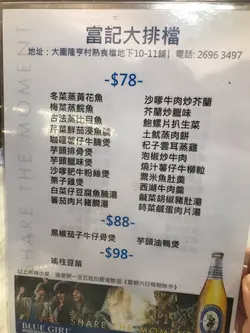 富記大排檔
地址：大圍隆亨村熟食檔地下10-11舖 | 電話: 2696 3497
-$78-
冬菜蒸黃花魚
梅菜蒸鯇魚
古法蒸比目魚
芹菜鮮茄浸魚
咖喱薯仔牛腩煲
芋頭排骨煲
芋頭臘味煲
沙嗲肥牛粉絲煲
栗子雞煲
白菜仔豆腐魚腩湯
蕃茄肉片豬膶湯
沙嗲牛肉炒芥蘭
芥蘭炒臘味
鮑螺片扒生菜
土魷蒸肉餅
杞子雲耳蒸雞
泡椒炒牛肉
燒汁薯仔牛柳粒
粟米魚肚羹
西湖牛肉羹
鹹菜胡椒豬肚湯
時菜鹹蛋肉片湯
-$88-
黑椒茄子牛仔骨煲
芋頭油鴨煲
-$98-
瑤柱豆苗
SHARE THE MOMENT
BLUE GIRL
SHARE
MOMENT